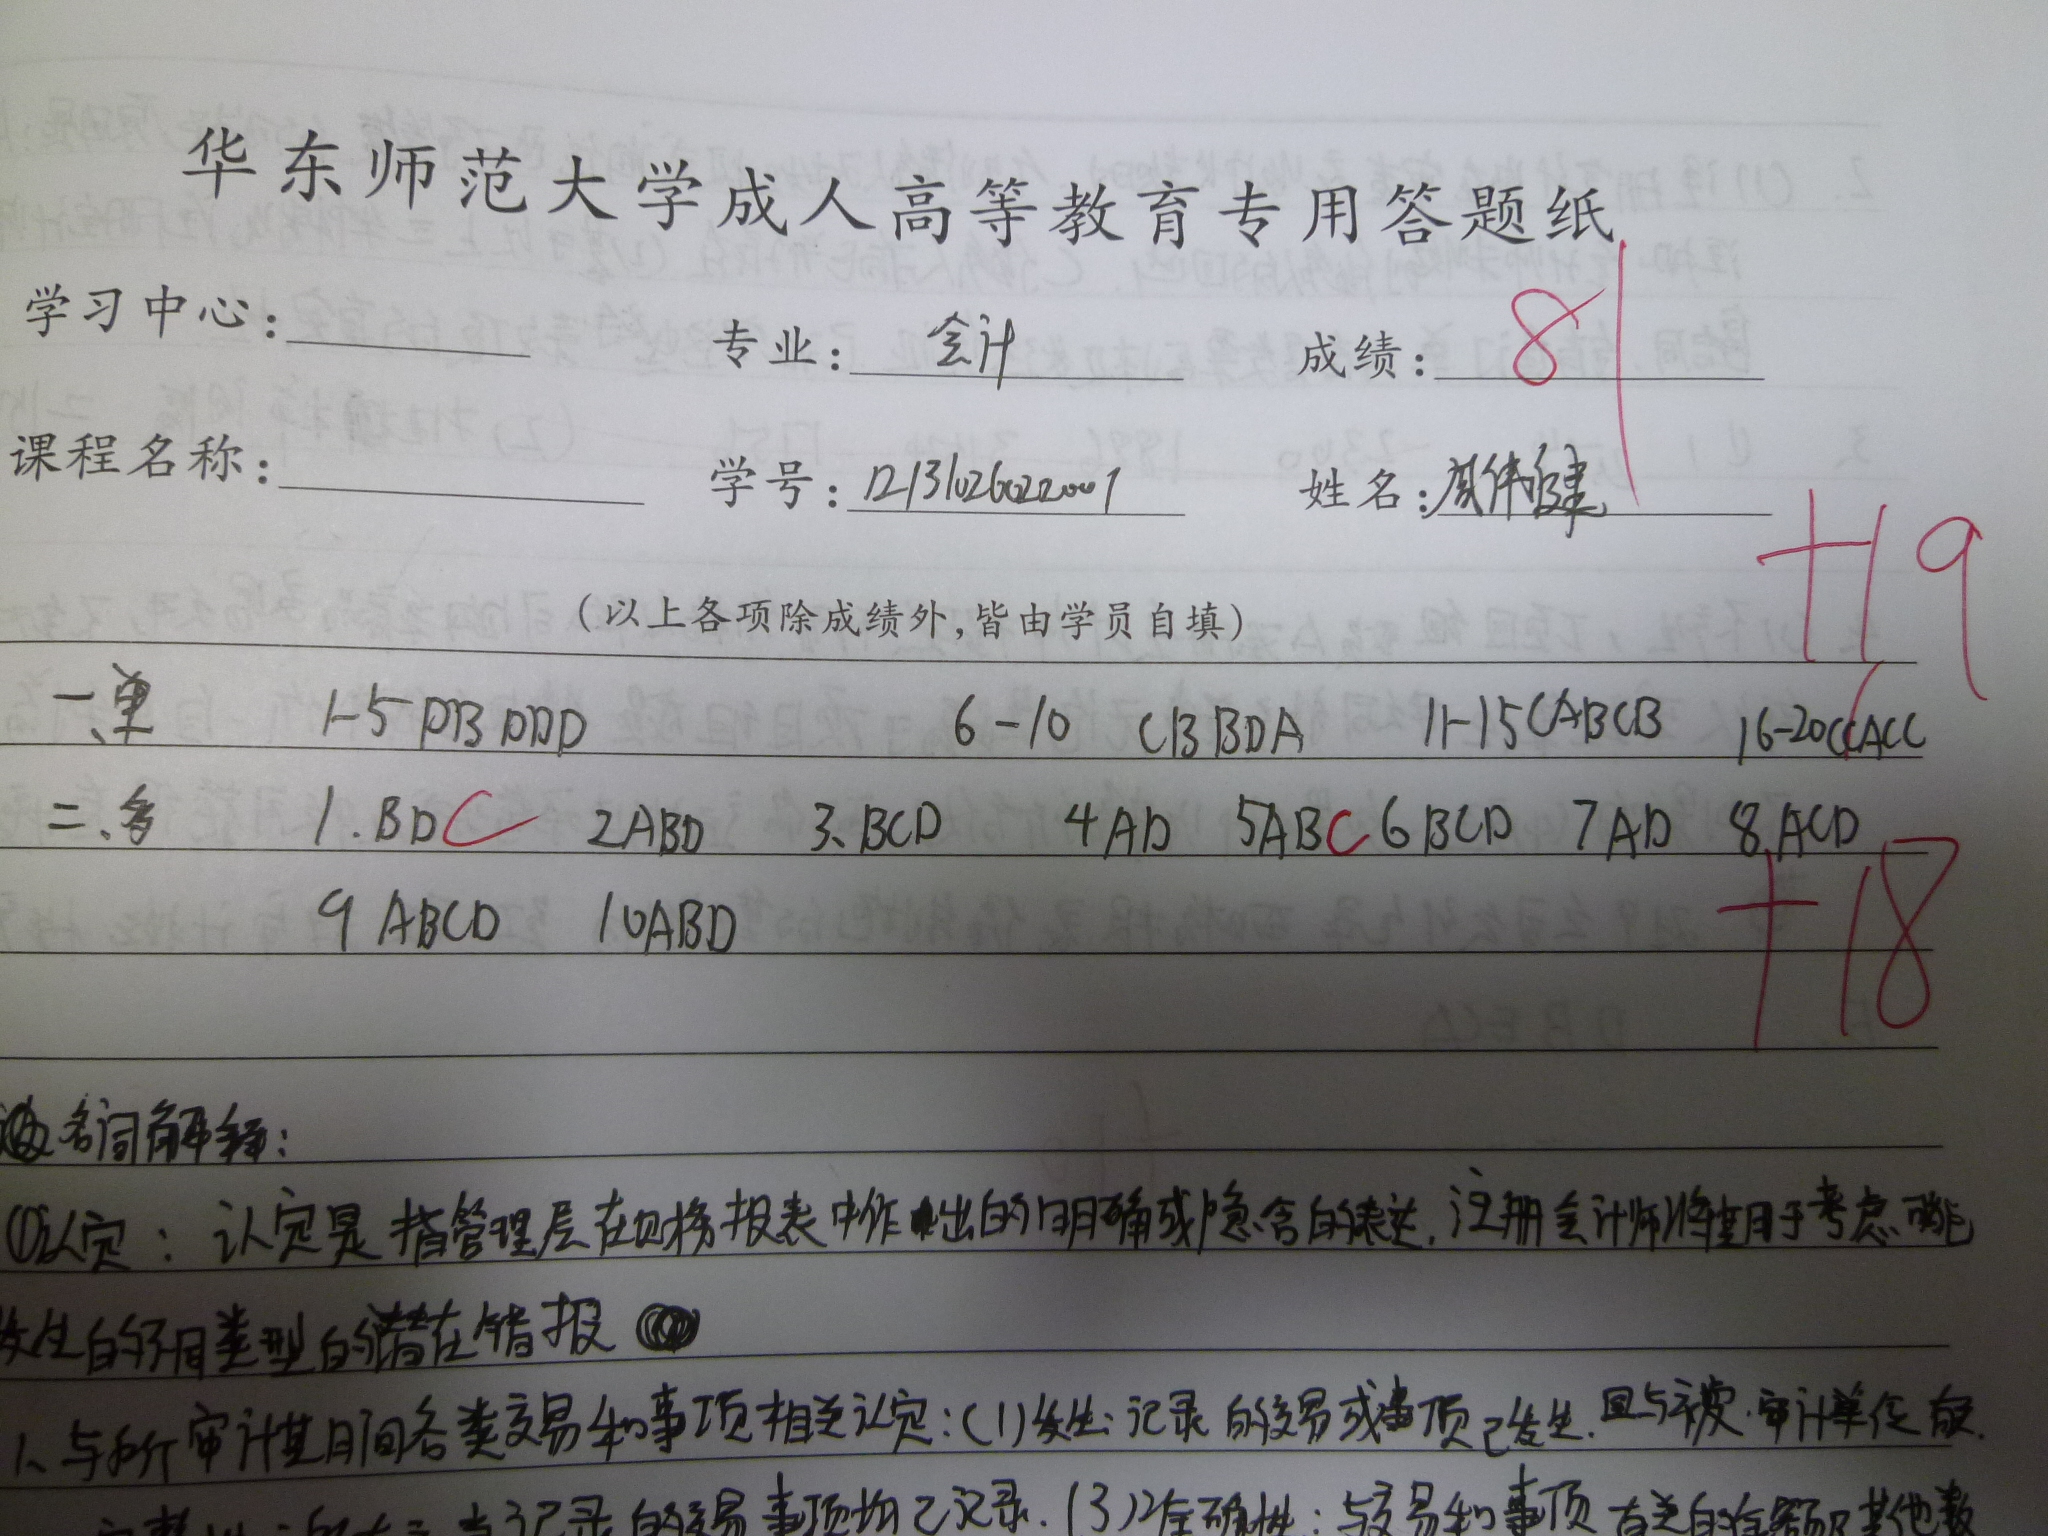 华东师范大学成人高等教育专用答题纸
学习中心: 专业: 会计 成绩: 81
课程名称: 学号: 12131026022001 姓名: 伟健
(以上各项除成绩外,皆由学员自填)
+19
一、单 1-5 DBDDD 6-10 CBBDA 11-15CABCB 16-20CCACC
二、多 1.BDC 2ABD 3、BCD 4AD 5ABC 6BCD 7AD 8.ACD
+18
9 ABCD 10ABD
名词解释:
①认定: 认定是指管理层在财务报表中作出的明确或隐含的表达,注册会计师将其用于考虑可能
发生的不同类型的潜在错报
1、与所审计期间各类交易和事项相关认定:(1)发生:记录的交易或事项已发生.且与被审计单位有
记录的交易事项均已记录.(3)准确性:与交易和事项有关的金额及其他数